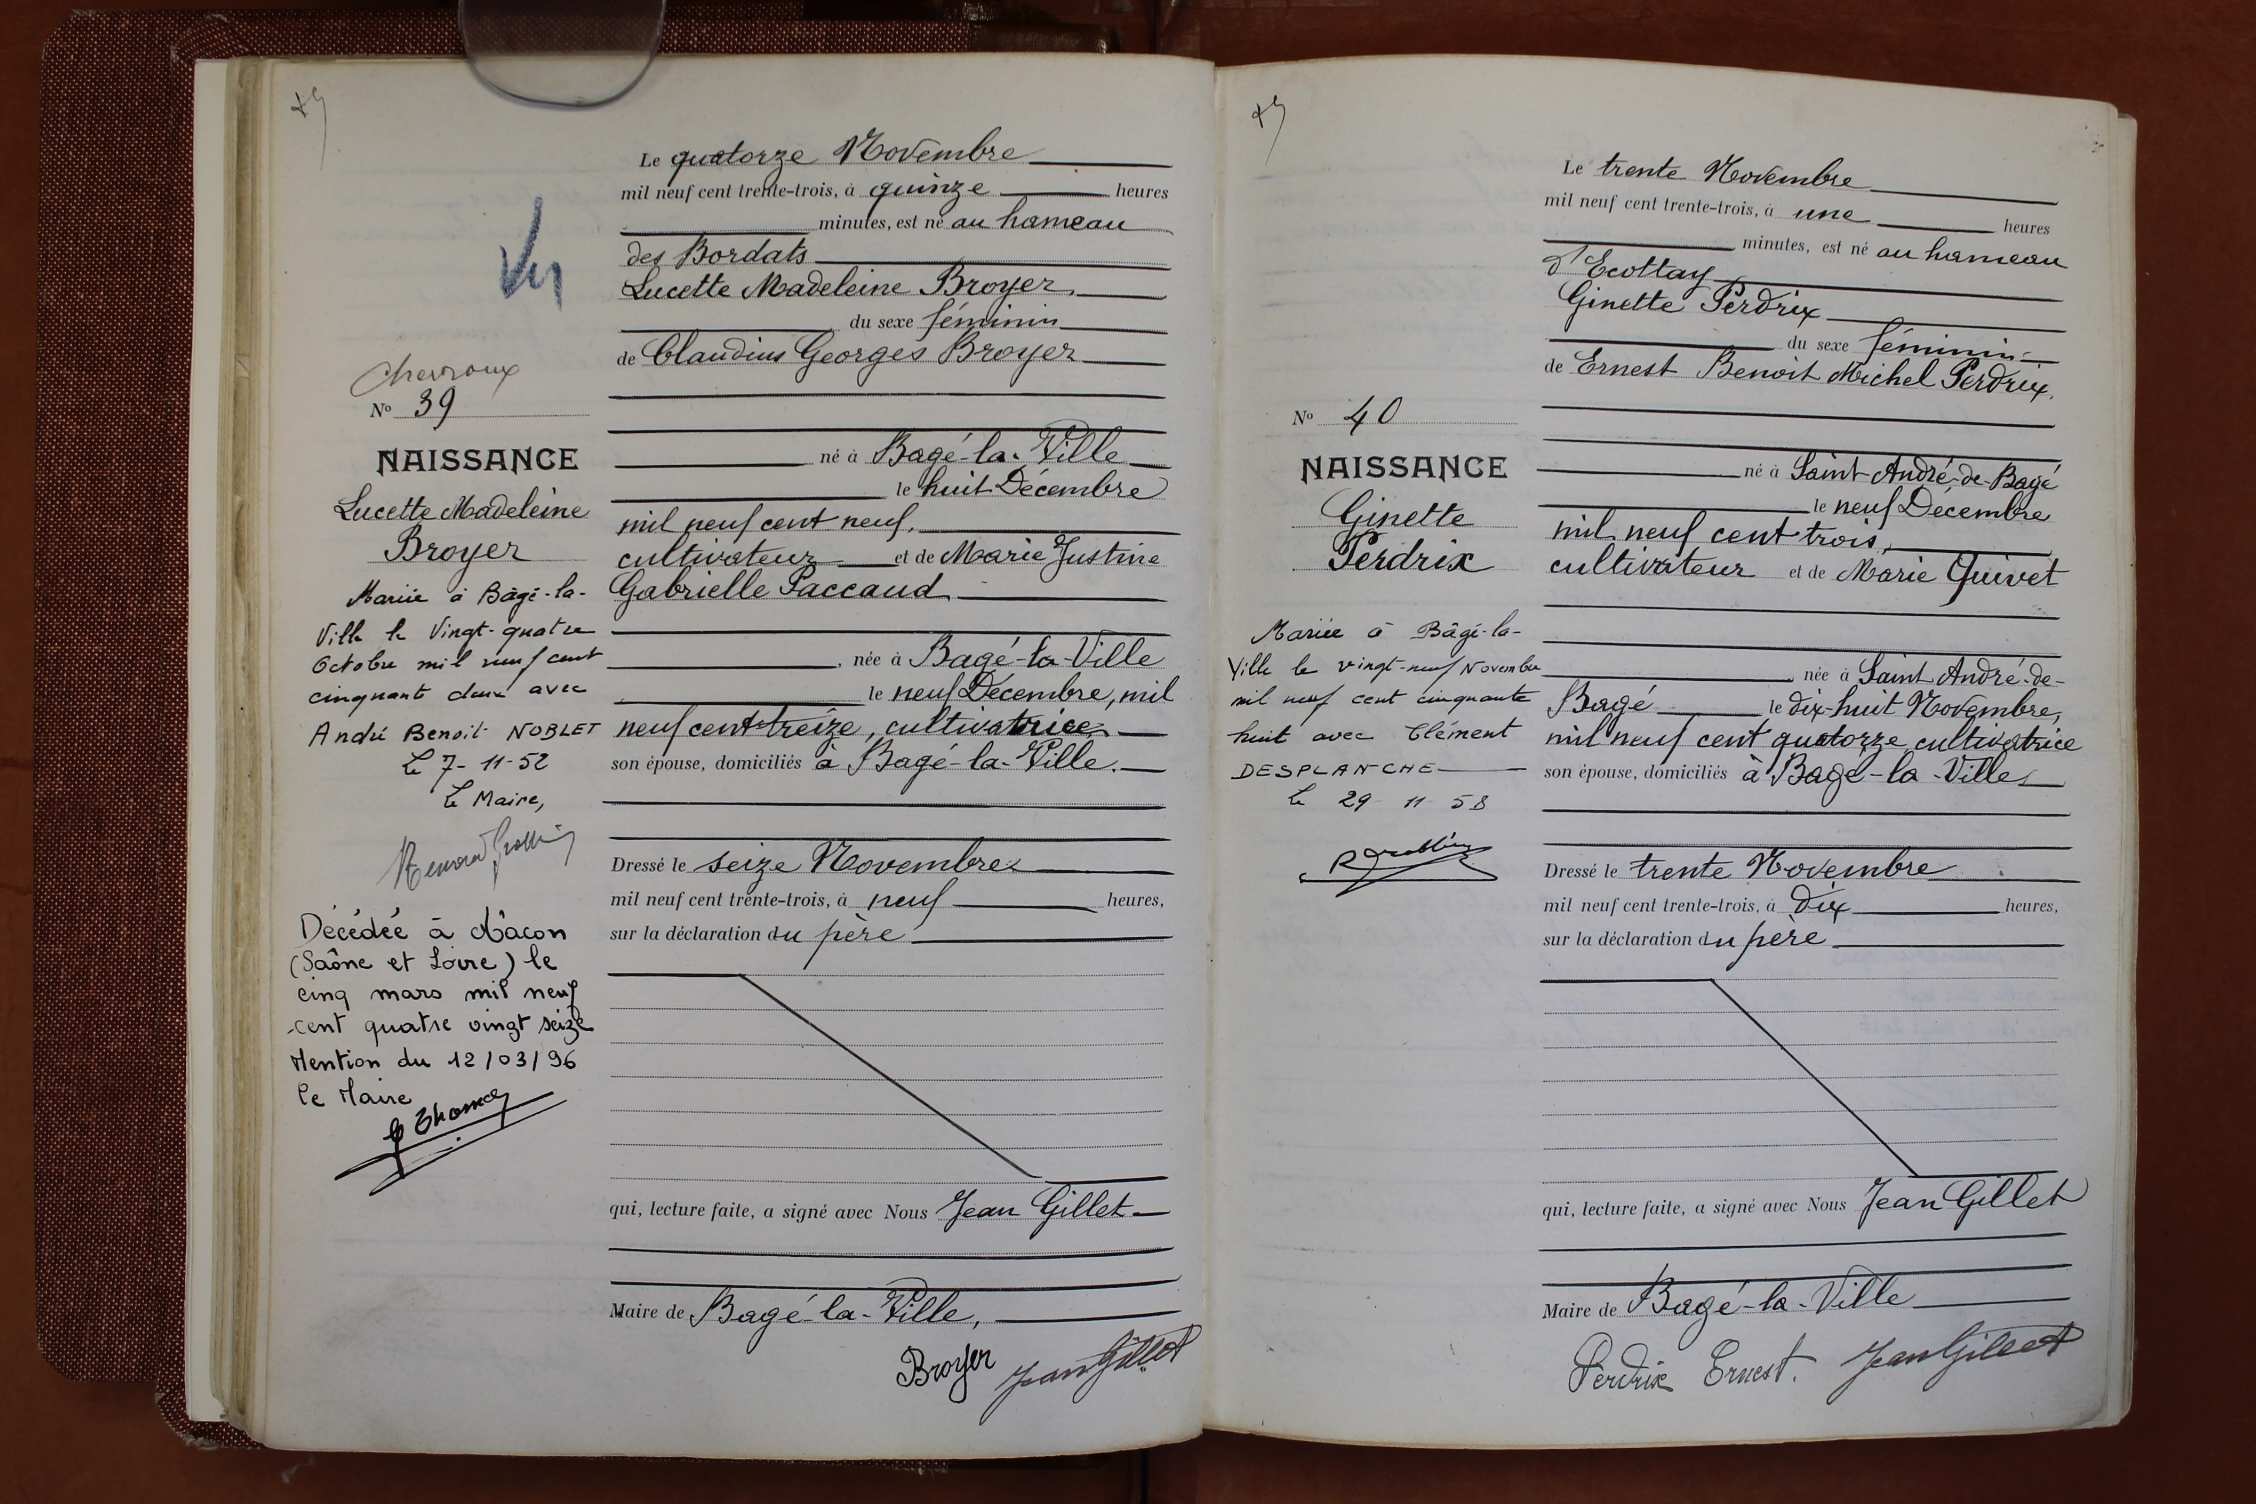 Le quatorze Novembre
mil neuf cent trente-trois, à quinze heures
minutes, est né au hameau
des Bordats
Lucette Madeleine Broyer,
du sexe féminin
de Claudius Georges Broyer
né à Bagé-la-Ville
le huit Décembre
mil neuf cent neuf,
cultivateur et de Marie Justine
Gabrielle Paccaud
, née à Bagé-la-Ville
le neuf Décembre, mil
neuf cent treize, cultivatrice
son épouse, domiciliés à Bagé-la-Ville.
Dressé le seize Novembre
mil neuf cent trente-trois, à neuf heures,
sur la déclaration du père
qui, lecture faite, a signé avec Nous Jean Gillet
Maire de Bagé-la-Ville,
Broyer Jean Gillet
Vu
Chevroux
No 39
NAISSANCE
Lucette Madeleine
Broyer
Mariée à Bâgé-la-
Ville le Vingt-quatre
Octobre mil neuf cent
cinquant deux avec
André Benoit NOBLET
Le 7-11-52
Le Maire,
Décédée à Mâcon
(Saône et Loire) le
cinq mars mil neuf
-cent quatre vingt seize
Mention du 12/03/96
le Maire
Le trente Novembre
mil neuf cent trente-trois, à une heures
minutes, est né au hameau
d'Ecottay
Ginette Perdrix
du sexe féminin
de Ernest Benoit Michel Perdrix,
né à Saint-André-de-Bagé
le neuf Décembre
mil neuf cent trois,
cultivateur et de Marie Quivet
née à Saint André-de-
Bagé le dix-huit Novembre,
mil neuf cent quatorze cultivatrice
son épouse, domiciliés à Bagé-la-Ville
Dressé le trente Novembre
mil neuf cent trente-trois, à dix heures,
sur la déclaration du père
qui, lecture faite, a signé avec Nous Jean Gillet
Maire de Bagé-la-Ville
Perdrix Ernest. Jean Gillet
No 40
NAISSANCE
Ginette
Perdrix
Mariée à Bâgé-la-
Ville le vingt-neuf Novembre
mil neuf cent cinquante
huit avec Clément
DESPLANCHE
Le 29 11 58